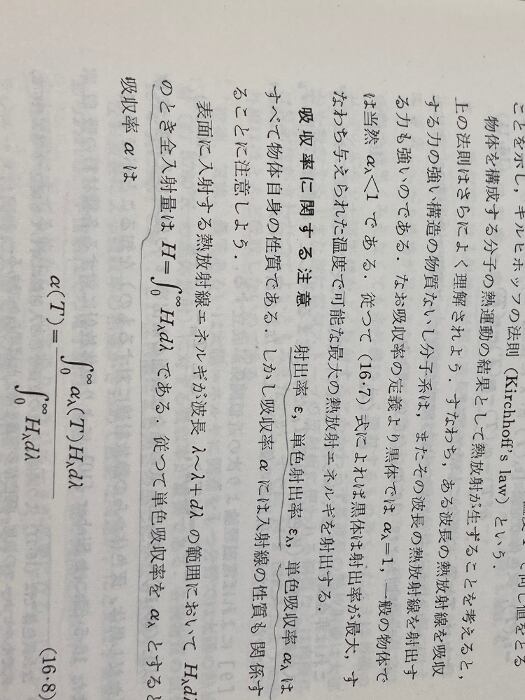 ことを示し，キルヒホッフの法則 (Kirchhoff's law) という．
物体を構成する分子の熱運動の結果として熱放射が生ずることを考えると，
上の法則はさらによく理解されよう．すなわち，ある波長の熱放射線を吸収
する力の強い構造の物質ないし分子系は，またその波長の熱放射線を射出す
る力も強いのである．なお吸収率の定義より黒体では αλ=1，一般の物体で
は当然 αλ<1 である．従つて (16·7) 式によれば黒体は射出率が最大，す
なわち与えられた温度で可能な最大の熱放射エネルギを射出する．
吸収率に関する注意 射出率 ε，単色射出率 ελ，単色吸収率 αλ は
すべて物体自身の性質である．しかし吸収率 α には入射線の性質も関係す
ることに注意しよう．
表面に入射する熱放射線エネルギが波長 λ~λ+dλ の範囲において Hλdλ
のとき全入射量は H=∫₀^∞ Hλdλ である．従つて単色吸収率を αλ とすると
吸収率 α は
α(T) = ∫₀^∞ αλ(T)Hλdλ / ∫₀^∞ Hλdλ (16·8)